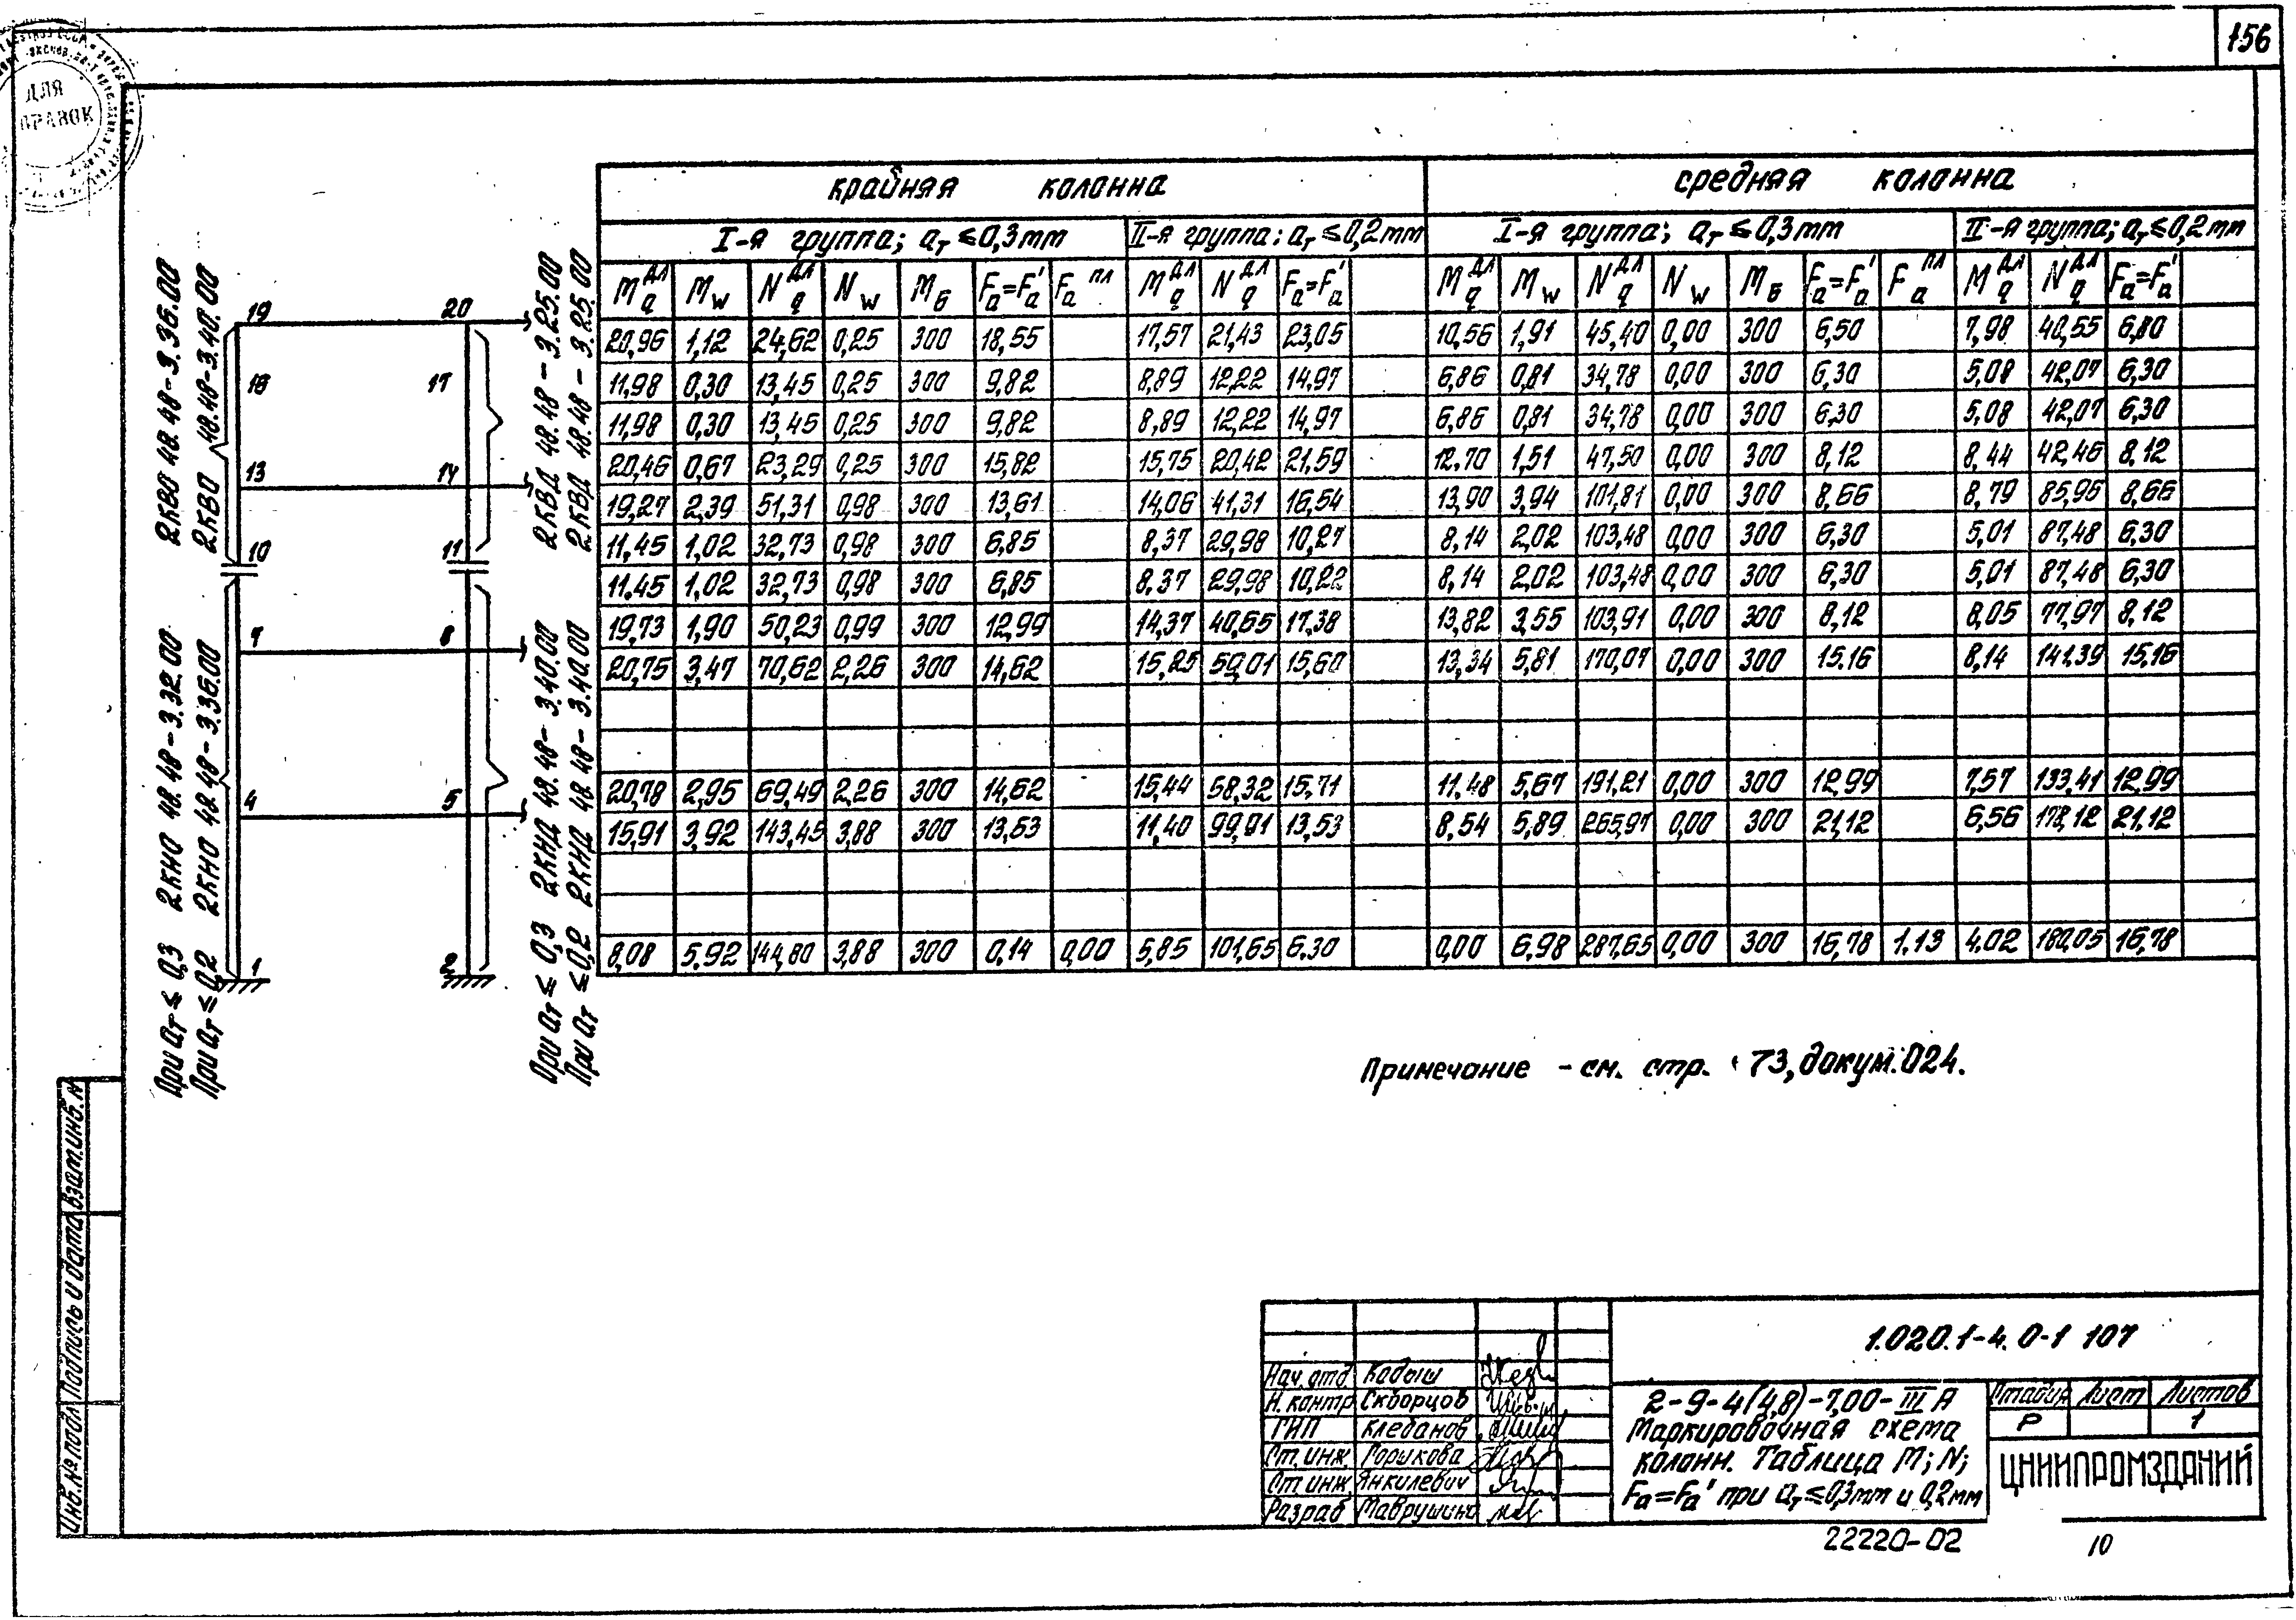 156
ДЛЯ
крайняя колонна
средняя колонна
I-я группа; aт ≤ 0,3 mm
II-я группа; aт ≤ 0,2 mm
I-я группа; aт ≤ 0,3 mm
II-я группа; aт ≤ 0,2 mm
Mq дл Mw Nq дл Nw Mб Fa=Fa' Fa пл Mq дл Nq дл Fa=Fa' Mq дл Mw Nq дл Nw Mб Fa=Fa' Fa пл Mq дл Nq дл Fa=Fa'
20,96 1,12 24,62 0,25 300 18,55 17,57 21,43 23,05 10,56 1,91 45,40 0,00 300 6,50 7,98 40,55 6,80
11,98 0,30 13,45 0,25 300 9,82 8,89 12,22 14,97 6,86 0,81 34,78 0,00 300 6,30 5,08 42,07 6,30
11,98 0,30 13,45 0,25 300 9,82 8,89 12,22 14,97 6,86 0,81 34,78 0,00 300 6,30 5,08 42,07 6,30
20,46 0,67 23,29 0,25 300 15,82 15,75 20,42 21,59 12,70 1,51 47,50 0,00 300 8,12 8,44 42,46 8,12
19,27 2,39 51,31 0,98 300 13,61 14,06 41,31 16,54 13,90 3,94 101,81 0,00 300 8,66 8,79 85,96 8,66
11,45 1,02 32,73 0,98 300 6,85 8,37 29,98 10,27 8,14 2,02 103,48 0,00 300 6,30 5,01 87,48 6,30
11,45 1,02 32,73 0,98 300 6,85 8,37 29,98 10,22 8,14 2,02 103,48 0,00 300 6,30 5,01 87,48 6,30
19,73 1,90 50,23 0,99 300 12,99 14,37 40,65 17,38 13,82 3,55 103,91 0,00 300 8,12 8,05 77,97 8,12
20,75 3,47 70,62 2,26 300 14,62 15,25 59,01 15,60 13,34 5,81 170,07 0,00 300 15,16 8,14 141,39 15,16
20,78 2,95 69,49 2,26 300 14,62 15,44 58,32 15,71 11,48 5,67 191,21 0,00 300 12,99 7,57 133,41 12,99
15,91 3,92 143,45 3,88 300 13,53 11,40 99,91 13,53 8,54 5,89 265,97 0,00 300 21,12 6,56 178,12 21,12
8,08 5,92 144,80 3,88 300 0,14 0,00 5,85 101,65 6,30 0,00 6,98 287,65 0,00 300 16,78 1,13 4,02 180,05 16,78
19 20
16 17
13 14
10 11
7 8
4 5
1 2
При aт ≤ 0,3 2КНО 48.48-3.32.00 2КВО 48.48-3.36.00
При aт ≤ 0,2 2КНО 48.48-3.36.00 2КВО 48.48-3.40.00
При aт ≤ 0,3 2КНД 48.48-3.40.00 2КВД 48.48-3.25.00
При aт ≤ 0,2 2КНД 48.48-3.40.00 2КВД 48.48-3.25.00
Примечание - см. стр. 73, докум. 024.
Инв.№ подл Подпись и дата Взам.инв.№
Нач.отд Кодыш
Н.контр Скворцов
ГИП Клебанов
Ст.инж. Горшкова
Ст.инж Янкилевич
Разраб Маврушина
1.020.1-4.0-1 107
2-9-4(4,8)-1,00-III А
Маркировочная схема
колонн. Таблица M; N;
Fa=Fa' при aт≤0,3mm и 0,2mm
Стадия Лист Листов
Р 1
ЦНИИПРОМЗДАНИЙ
22220-02 10